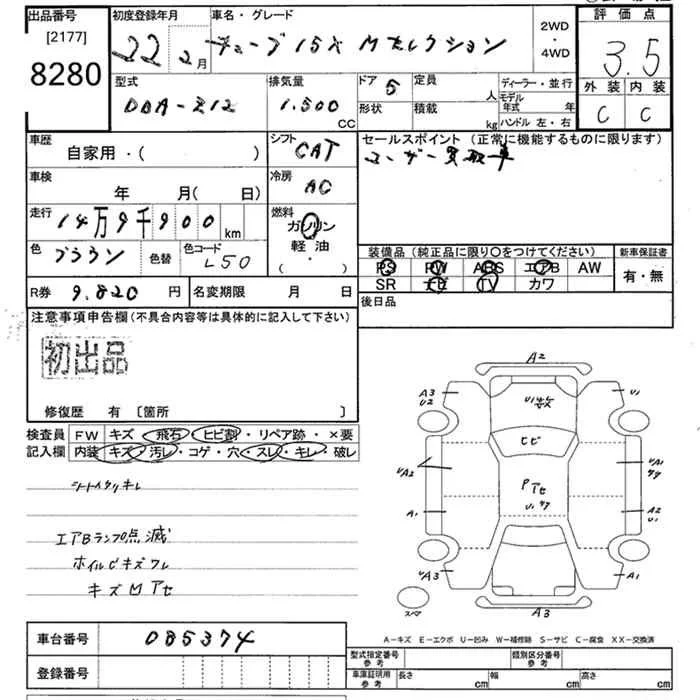 出品番号
[2177]
8280
初度登録年月
22年2月
車名・グレード
キューブ 15X Mセレクション
2WD
・
4WD
評価点
3.5
外装 内装
C C
型式
DBA-Z12
排気量
1.500
CC
ドア
5
定員
人
形状
積載
kg
ディーラー・並行
モデル年式 年
ハンドル 左・右
車歴
自家用・( )
シフト
CAT
セールスポイント (正常に機能するものに限ります)
ユーザー買取車
車検
年 月( 日)
冷房
AC
走行
14万9千900km
燃料
ガソリン
軽油
( )
色
ブラウン
色替
色コード
L50
装備品 (純正品に限り○をつけてください)
PS PW ABS エアB AW
SR ナビ TV カワ
新車保証書
有・無
R券
9.820円
名変期限 月 日
後日品
注意事項申告欄 (不具合内容等は具体的に記入して下さい)
初出品
修復歴 有 〔箇所 〕
検査員
記入欄
FW キズ・飛石・ヒビ割・リペア跡・×要
内装 キズ・汚レ・コゲ・穴・スレ・キレ・破レ
エアBランプ点滅
ホイルCキズワレ
キズMアセ
A2
A3
U2
U1
ヒビ
A1
A2
U1
A3
A1
A3
スペア
車台番号
085374
登録番号
A-キズ E-エクボ U-凹み W-補修跡 S-サビ C-腐食 XX-交換済
型式指定番号
参考
類別区分番号
参考
車庫証明用
参考
長さ cm
幅 cm
高さ cm